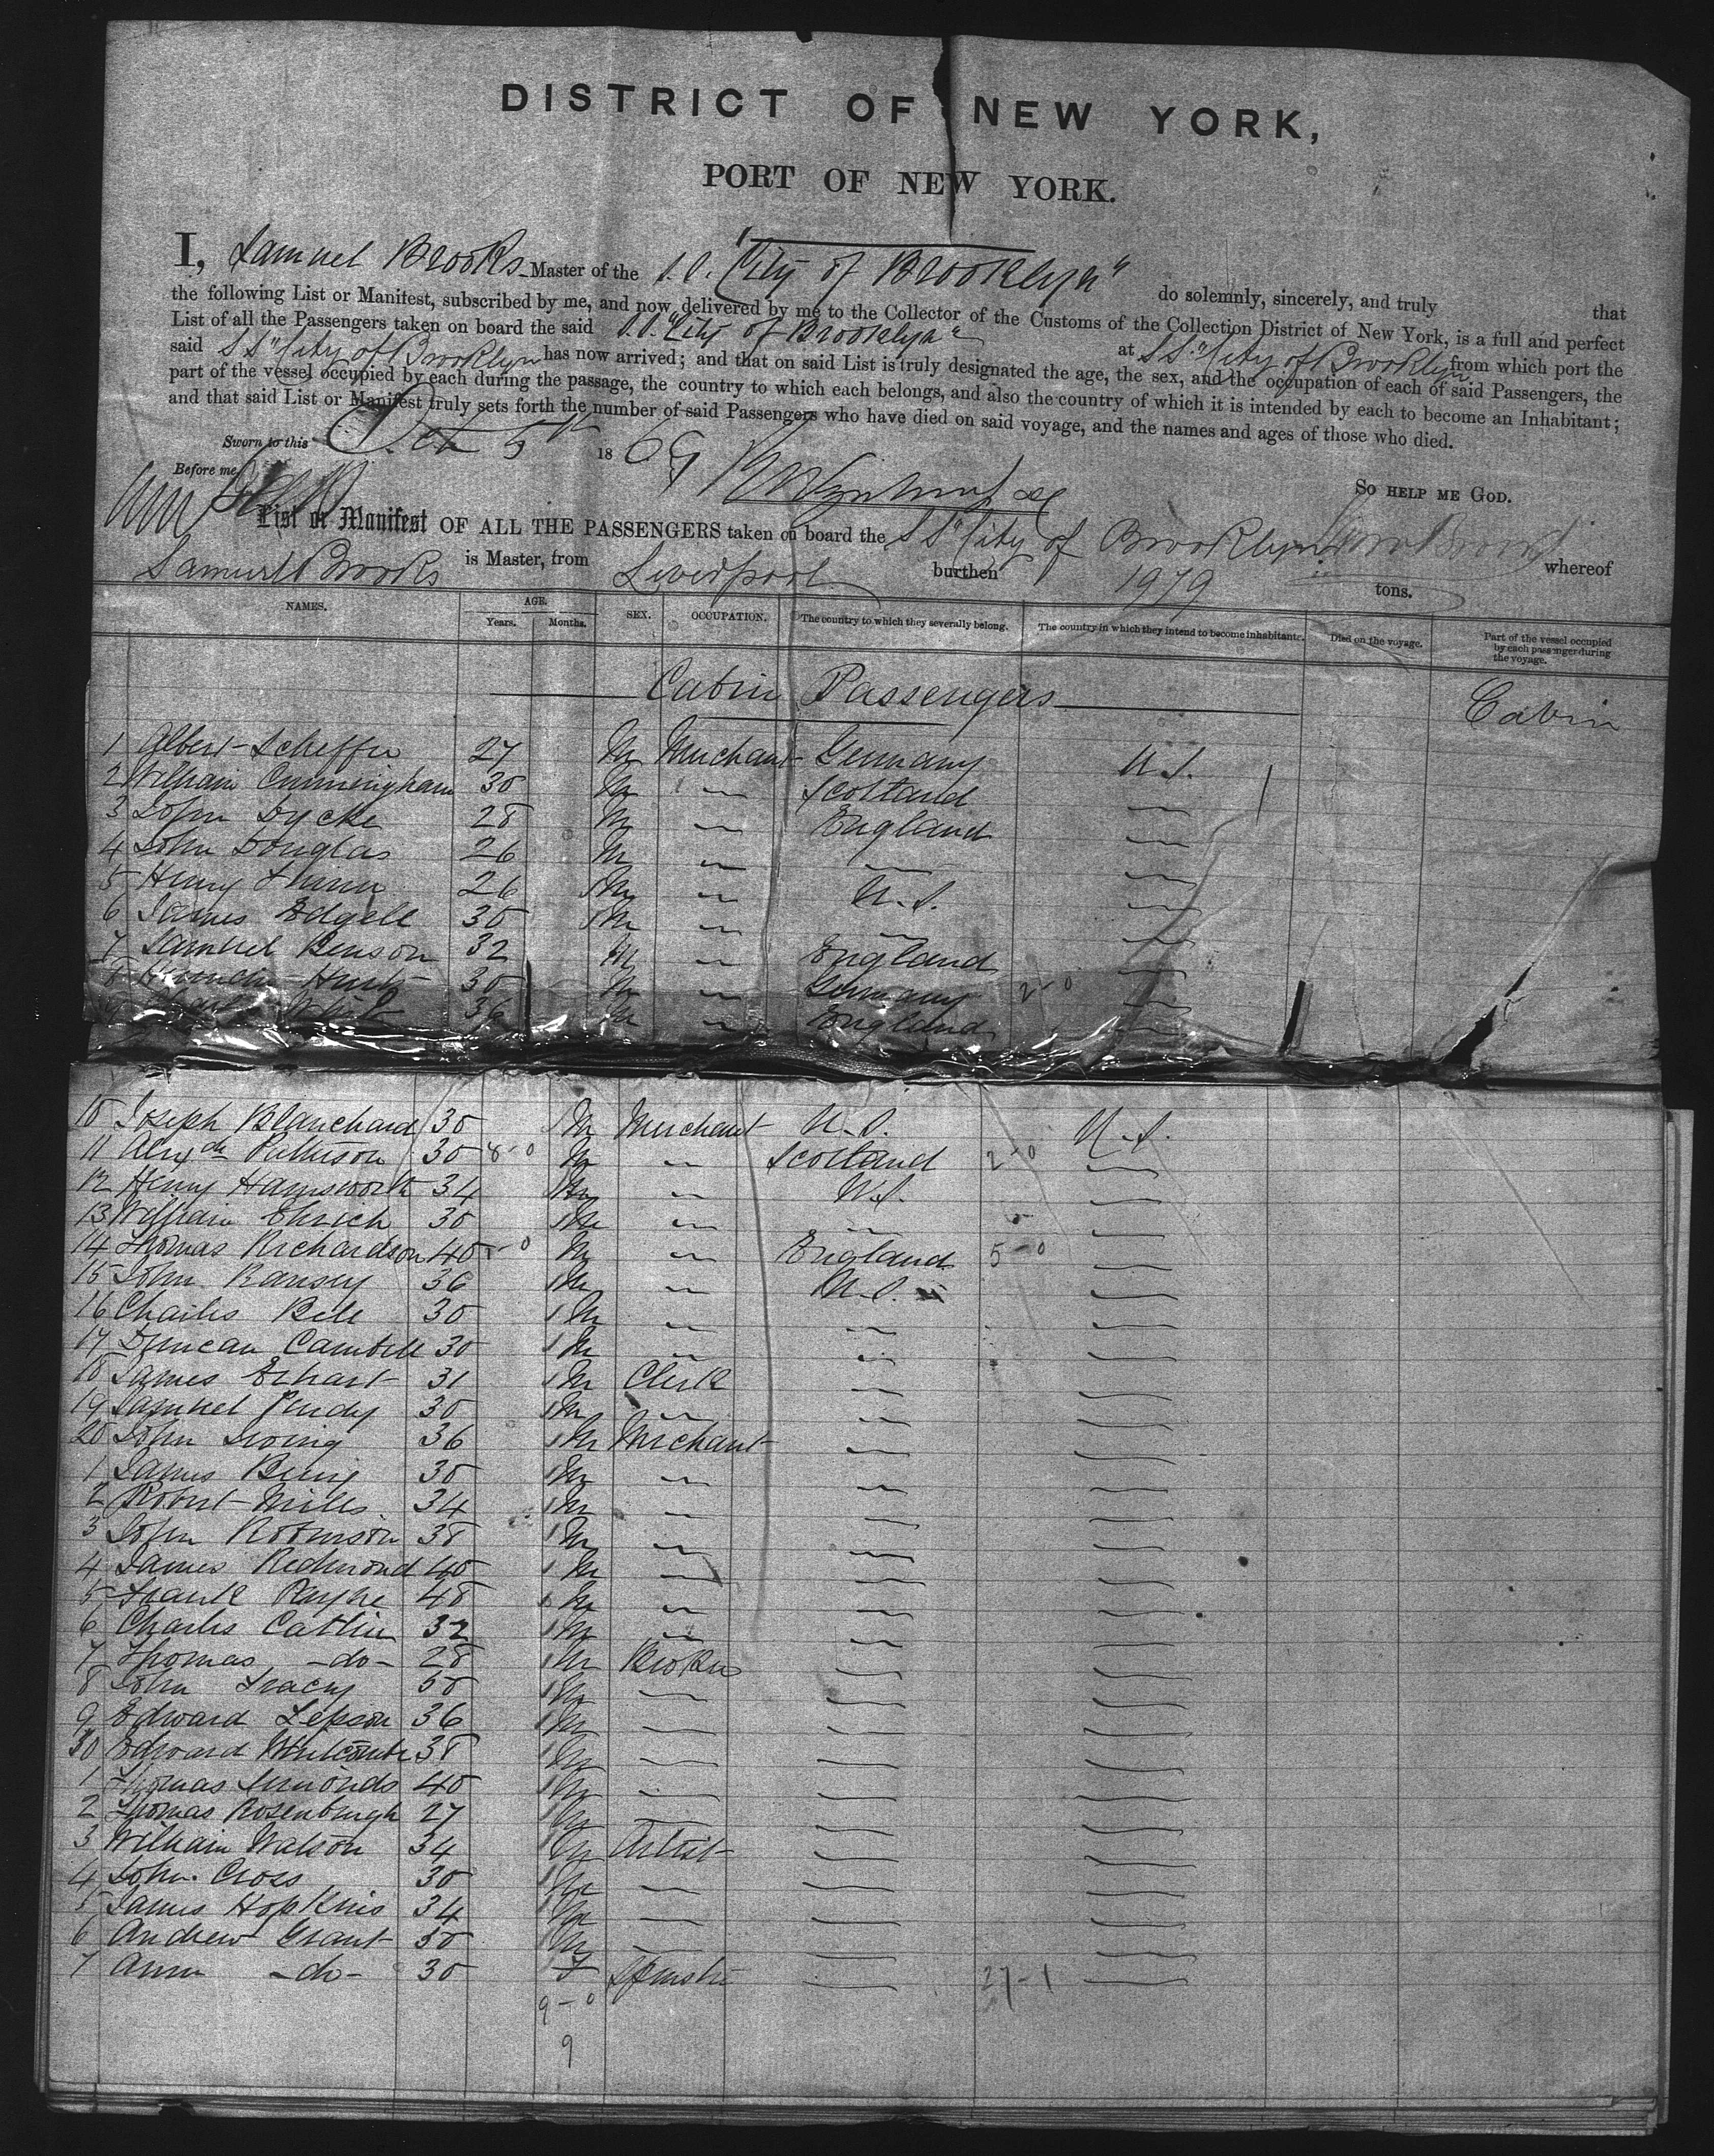 DISTRICT OF NEW YORK,
PORT OF NEW YORK.
I, Samuel Brooks Master of the S.S. "City of Brooklyn" do solemnly, sincerely, and truly that
the following List or Manifest, subscribed by me, and now delivered by me to the Collector of the Customs of the Collection District of New York, is a full and perfect
List of all the Passengers taken on board the said S.S. "City of Brooklyn" at SS "City of Brooklyn from which port the
said SS "City of Brooklyn has now arrived; and that on said List is truly designated the age, the sex, and the occupation of each of said Passengers, the
part of the vessel occupied by each during the passage, the country to which each belongs, and also the country of which it is intended by each to become an Inhabitant;
and that said List or Manifest truly sets forth the number of said Passengers who have died on said voyage, and the names and ages of those who died.
Sworn to this Oct 5th 1869
Before me
SO HELP ME GOD.
List or Manifest OF ALL THE PASSENGERS taken on board the SS "City of Brooklyn whereof
Samuel Brooks is Master, from Liverpool burthen 1979 tons.
NAMES. AGE. Years. Months. SEX. OCCUPATION. The country to which they severally belong. The country in which they intend to become inhabitants. Died on the voyage. Part of the vessel occupied by each passenger during the voyage.
Cabin Passengers Cabin
1 Albert Scheffer 27 M Merchant Germany U.S.
2 William Cunningham 30 M " Scotland "
3 John Dycke 28 M " England "
4 John Douglas 26 M " " "
5 Henry 26 M " U.S. "
6 James Edgell 30 M " " "
7 Samuel Benson 32 M " England "
8 30 M " Germany 2-0 "
9 White 36 M " England "
10 Joseph Blanchard 30 M Merchant U.S. U.S.
11 Alexdr Pattison 30 8-0 M " Scotland 2-0 "
12 Henry Hainsworth 34 M " U.S. "
13 William 30 M " " "
14 Thomas Richardson 40 M " England 5-0 "
15 John Ransey 36 M " U.S. "
16 Charles Bell 30 M " " "
17 Duncan Cambell 30 M " " "
18 James Erhart 31 M Clerk " "
19 Samuel Purdy 30 M " " "
20 John Irving 36 M Merchant " "
1 James 30 M " " "
2 Robert Mills 34 M " " "
3 John Robinson 38 M " " "
4 James Redmond 40 M " " "
5 Frank Payne 48 M " " "
6 Charles Catlin 32 M " " "
7 Thomas -do- 28 M Broker " "
8 John Tracey 50 M " " "
9 Edward Jepson 36 M " " "
30 Edward Whitcombe 38 M " " "
1 Thomas Simonds 40 M " " "
2 Thomas Rosenburgh 27 M " " "
3 William Watson 34 M Artist " "
4 John Cross 30 M " " "
5 James Hopkins 34 M " " "
6 Andrew Grant 50 M " " "
7 Ann -do- 30 F Spinster " 27-1 "
9-0
9